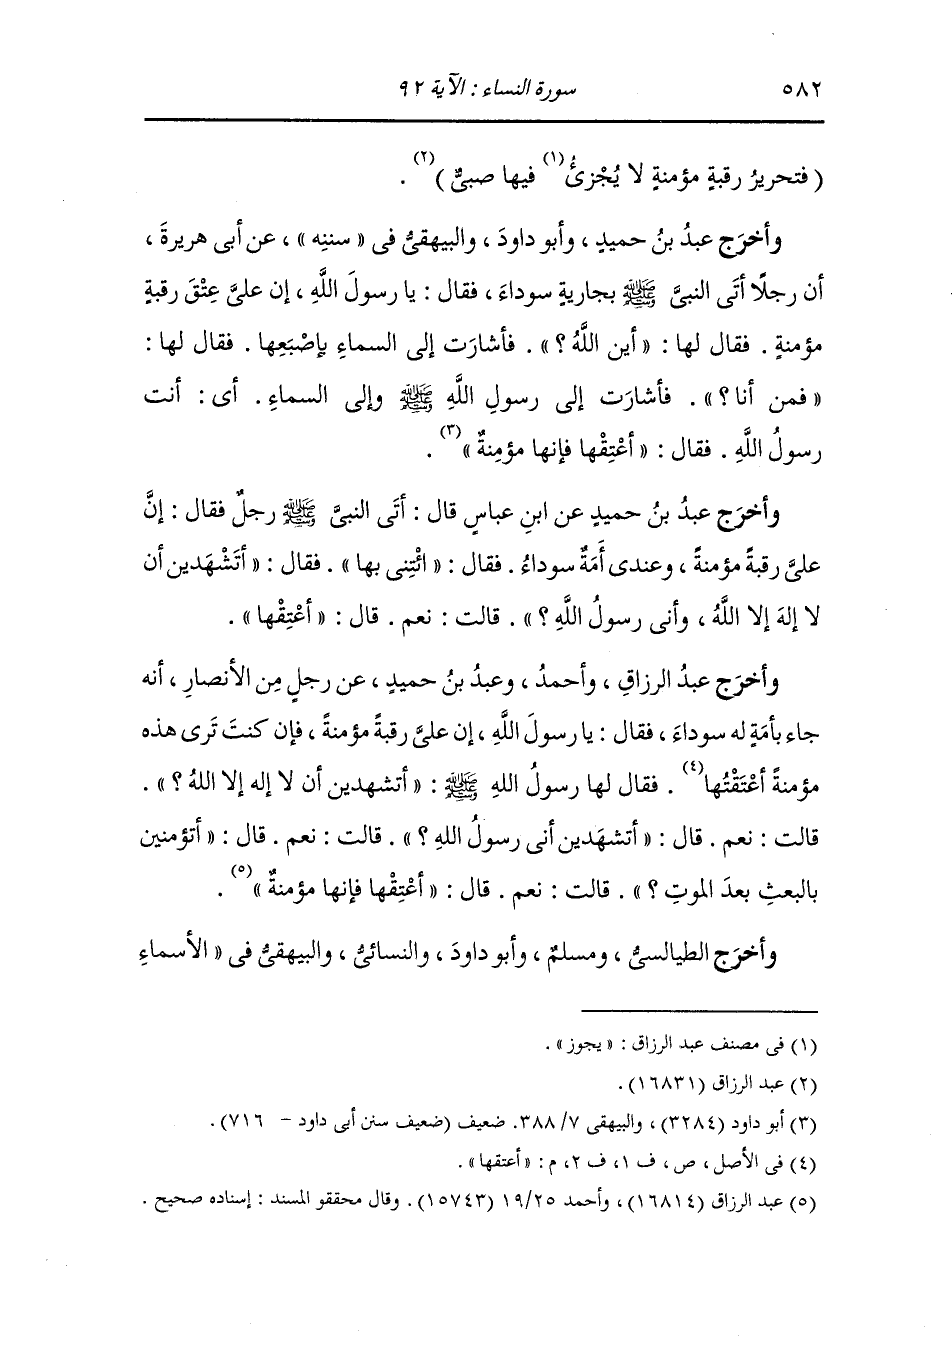 ٥٨٢ سورة النساء : الآية ٩٢
( فتحريرُ رقبةٍ مؤمنةٍ لا يُجْزِئُ(١) فيها صبىٌّ )(٢) .
وأخرَج عبدُ بنُ حميدٍ ، وأبو داودَ ، والبيهقىُّ فى « سننِه » ، عن أبى هريرةَ ،
أن رجلًا أتَى النبىَّ ﷺ بجاريةٍ سوداءَ ، فقال : يا رسولَ اللَّهِ ، إن علىَّ عِتْقَ رقبةٍ
مؤمنةٍ . فقال لها : « أين اللَّهُ ؟ » . فأشارَت إلى السماءِ بإصْبَعِها . فقال لها :
« فمن أنا ؟ » . فأشارَت إلى رسولِ اللَّهِ ﷺ وإلى السماءِ . أى : أنت
رسولُ اللَّهِ . فقال : « أعْتِقْها فإنها مؤمِنةٌ »(٣) .
وأخرَج عبدُ بنُ حميدٍ عن ابنِ عباسٍ قال : أتَى النبىَّ ﷺ رجلٌ فقال : إنَّ
علىَّ رقبةً مؤمنةً ، وعندى أَمَةٌ سوداءُ . فقال : « ائْتِنى بها » . فقال : « أتَشْهَدين أن
لا إلهَ إلا اللَّهُ ، وأنى رسولُ اللَّهِ ؟ » . قالت : نعم . قال : « أعْتِقْها » .
وأخرَج عبدُ الرزاقِ ، وأحمدُ ، وعبدُ بنُ حميدٍ ، عن رجلٍ مِن الأنصارِ ، أنه
جاء بأمَةٍ له سوداءَ ، فقال : يا رسولَ اللَّهِ ، إن علىَّ رقبةً مؤمنةً ، فإن كنتَ تَرى هذه
مؤمنةً أعْتَقْتُها(٤) . فقال لها رسولُ اللهِ ﷺ : « أتشهدين أن لا إله إلا اللهُ ؟ » .
قالت : نعم . قال : « أتشهَدين أنى رسولُ اللهِ ؟ » . قالت : نعم . قال : « أتؤمنين
بالبعثِ بعدَ الموتِ ؟ » . قالت : نعم . قال : « أعْتِقْها فإنها مؤمنةٌ »(٥) .
وأخرَج الطيالسىُّ ، ومسلمٌ ، وأبو داودَ ، والنسائىُّ ، والبيهقىُّ فى « الأسماءِ
(١) فى مصنف عبد الرزاق : « يجوز » .
(٢) عبد الرزاق (١٦٨٣١) .
(٣) أبو داود (٣٢٨٤) ، والبيهقى ٧/ ٣٨٨. ضعيف (ضعيف سنن أبى داود - ٧١٦) .
(٤) فى الأصل ، ص ، ف ١، ف ٢، م : « أعتقها » .
(٥) عبد الرزاق (١٦٨١٤) ، وأحمد ١٩/٢٥ (١٥٧٤٣) . وقال محققو المسند : إسناده صحيح .